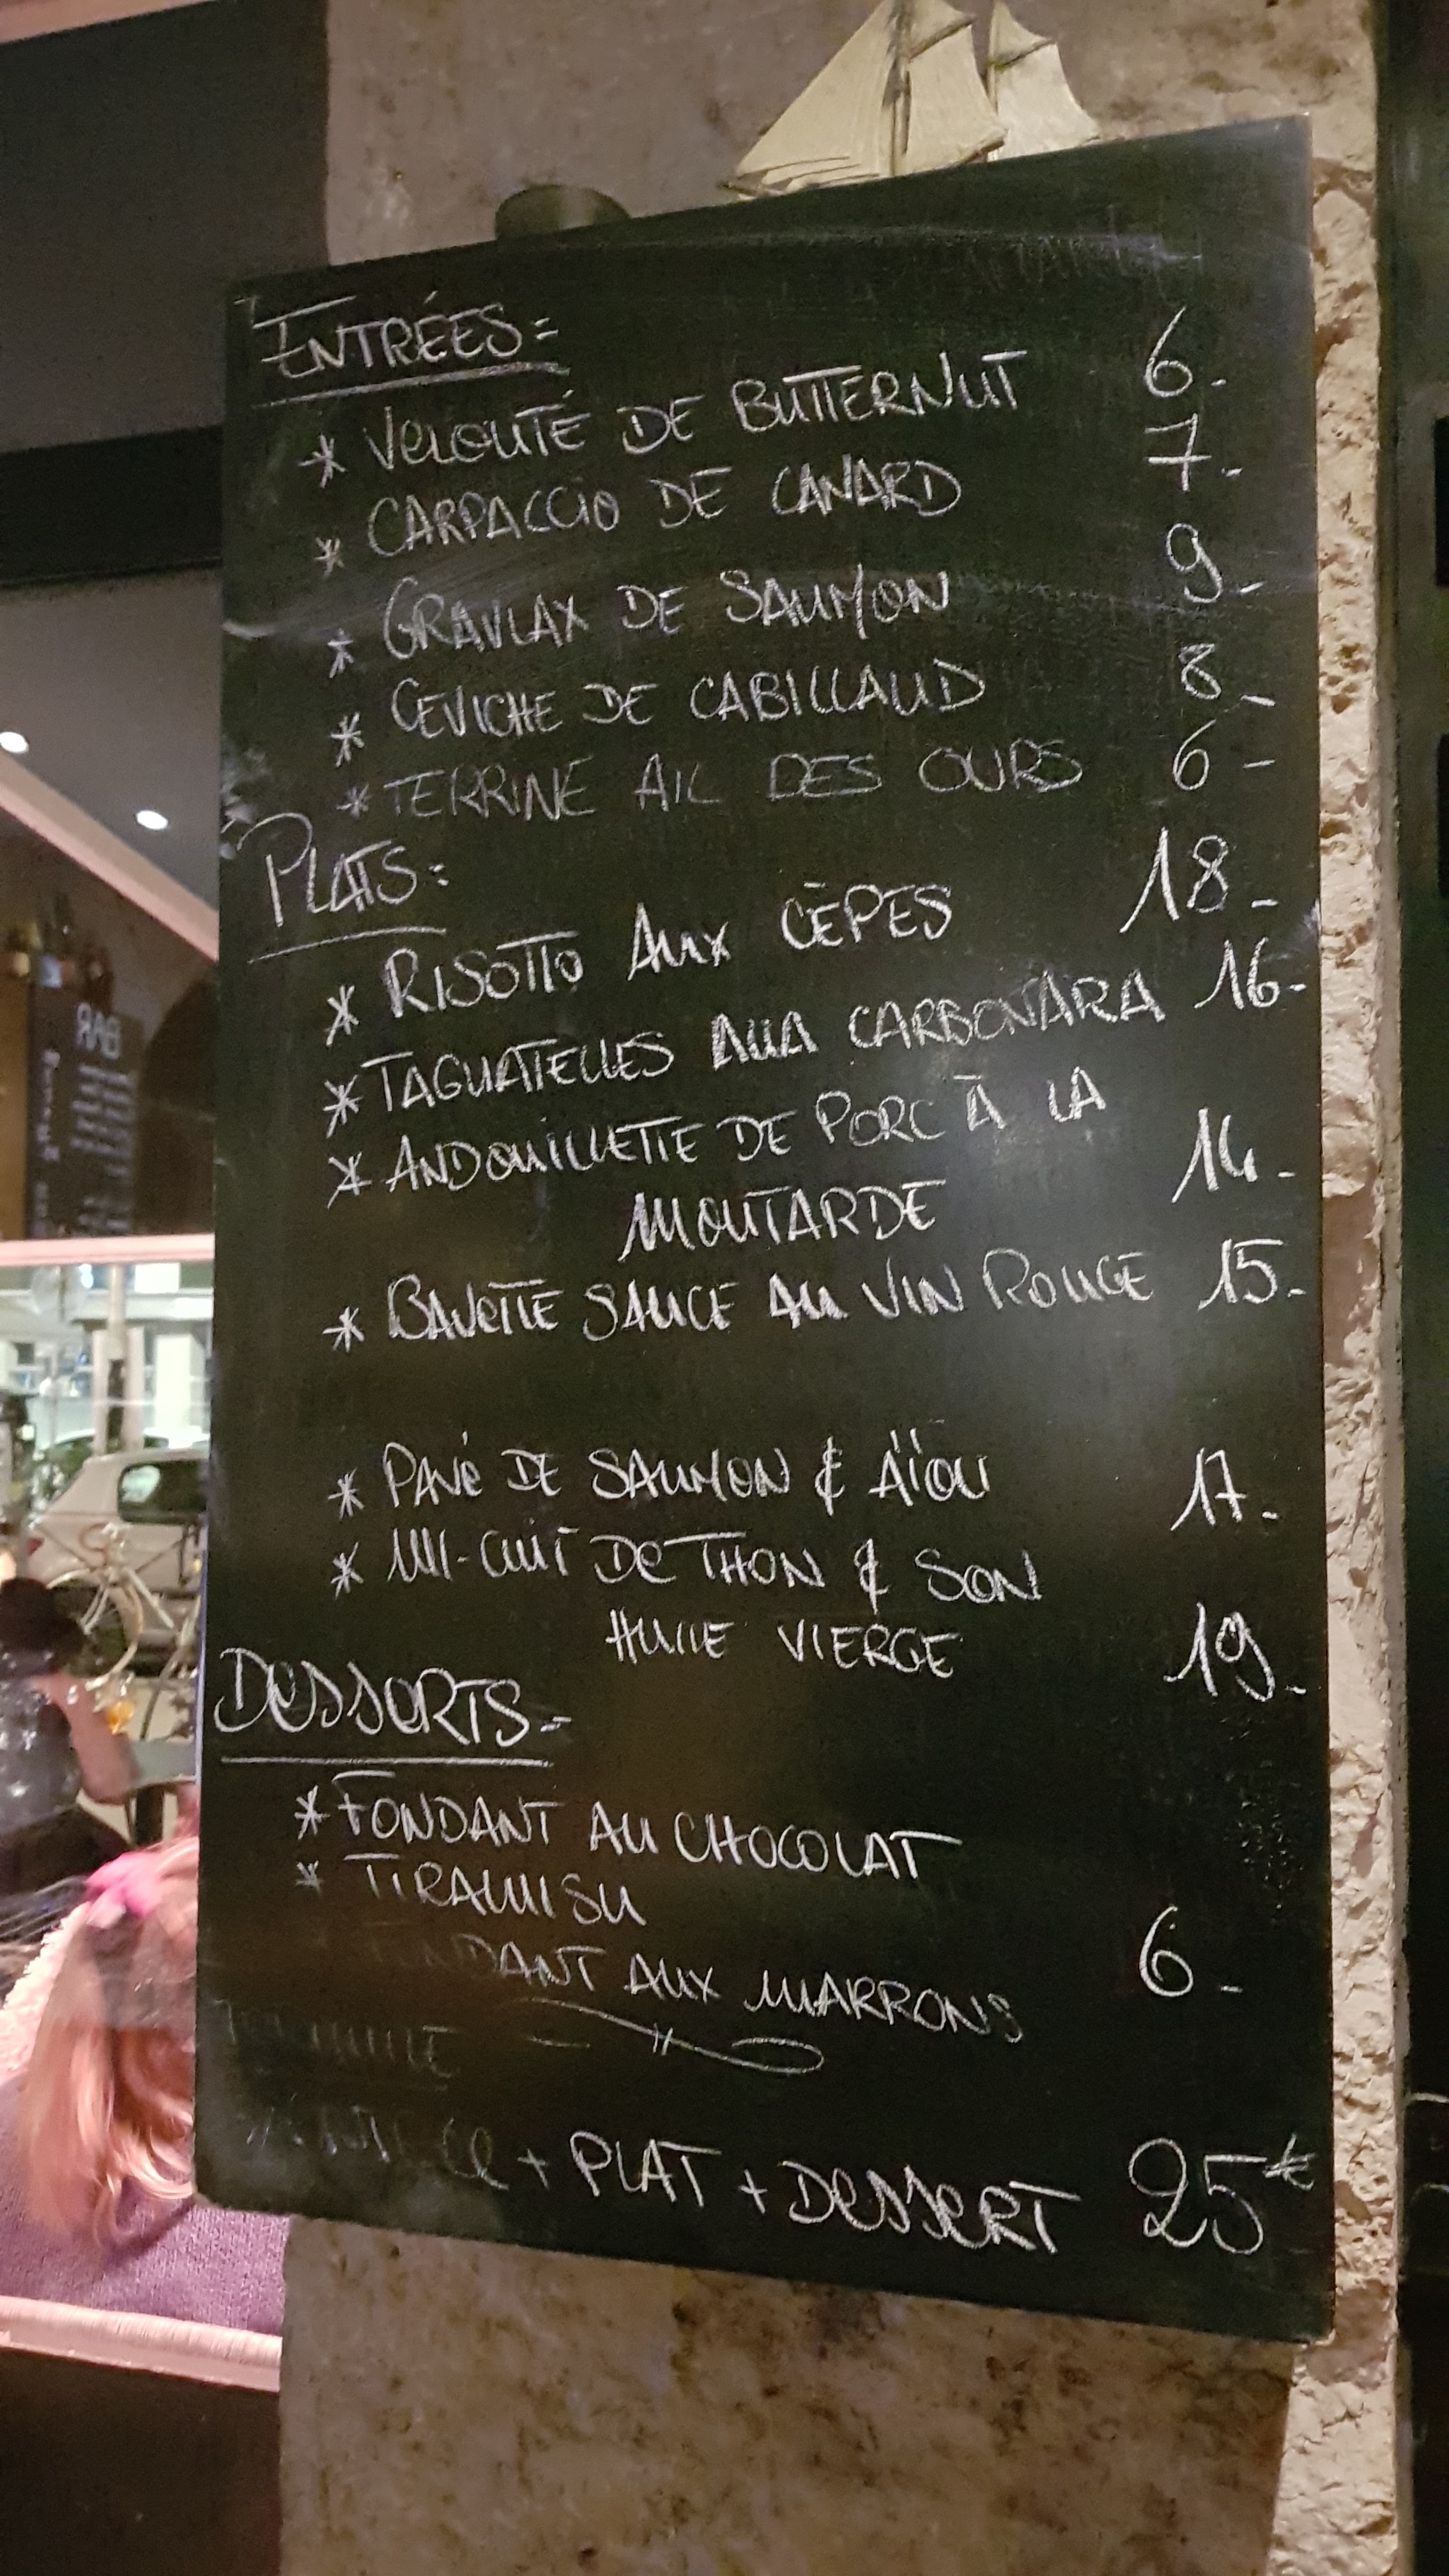 ENTRÉES:
* VELOUTÉ DE BUTTERNUT 6.-
* CARPACCIO DE CANARD 7.-
* GRAVLAX DE SAUMON 9.-
* CEVICHE DE CABILLAUD 8.-
* TERRINE AIL DES OURS 6-
PLATS:
* RISOTTO AUX CÈPES 18-
* TAGLIATELLES ALLA CARBONARA 16-
* ANDOUILLETTE DE PORC À LA
MOUTARDE 14-
* BAVETTE SAUCE AU VIN ROUGE 15-
* PAVÉ DE SAUMON & AÏOLI 17-
* MI-CUIT DE THON & SON
HUILE VIERGE 19-
DESSERTS:
* FONDANT AU CHOCOLAT
* TIRAMISU
AUX MARRONS 6-
+ PLAT + DESSERT 25€
BAR